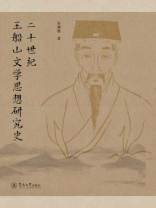 二十世纪
王船山文学思想研究史
著